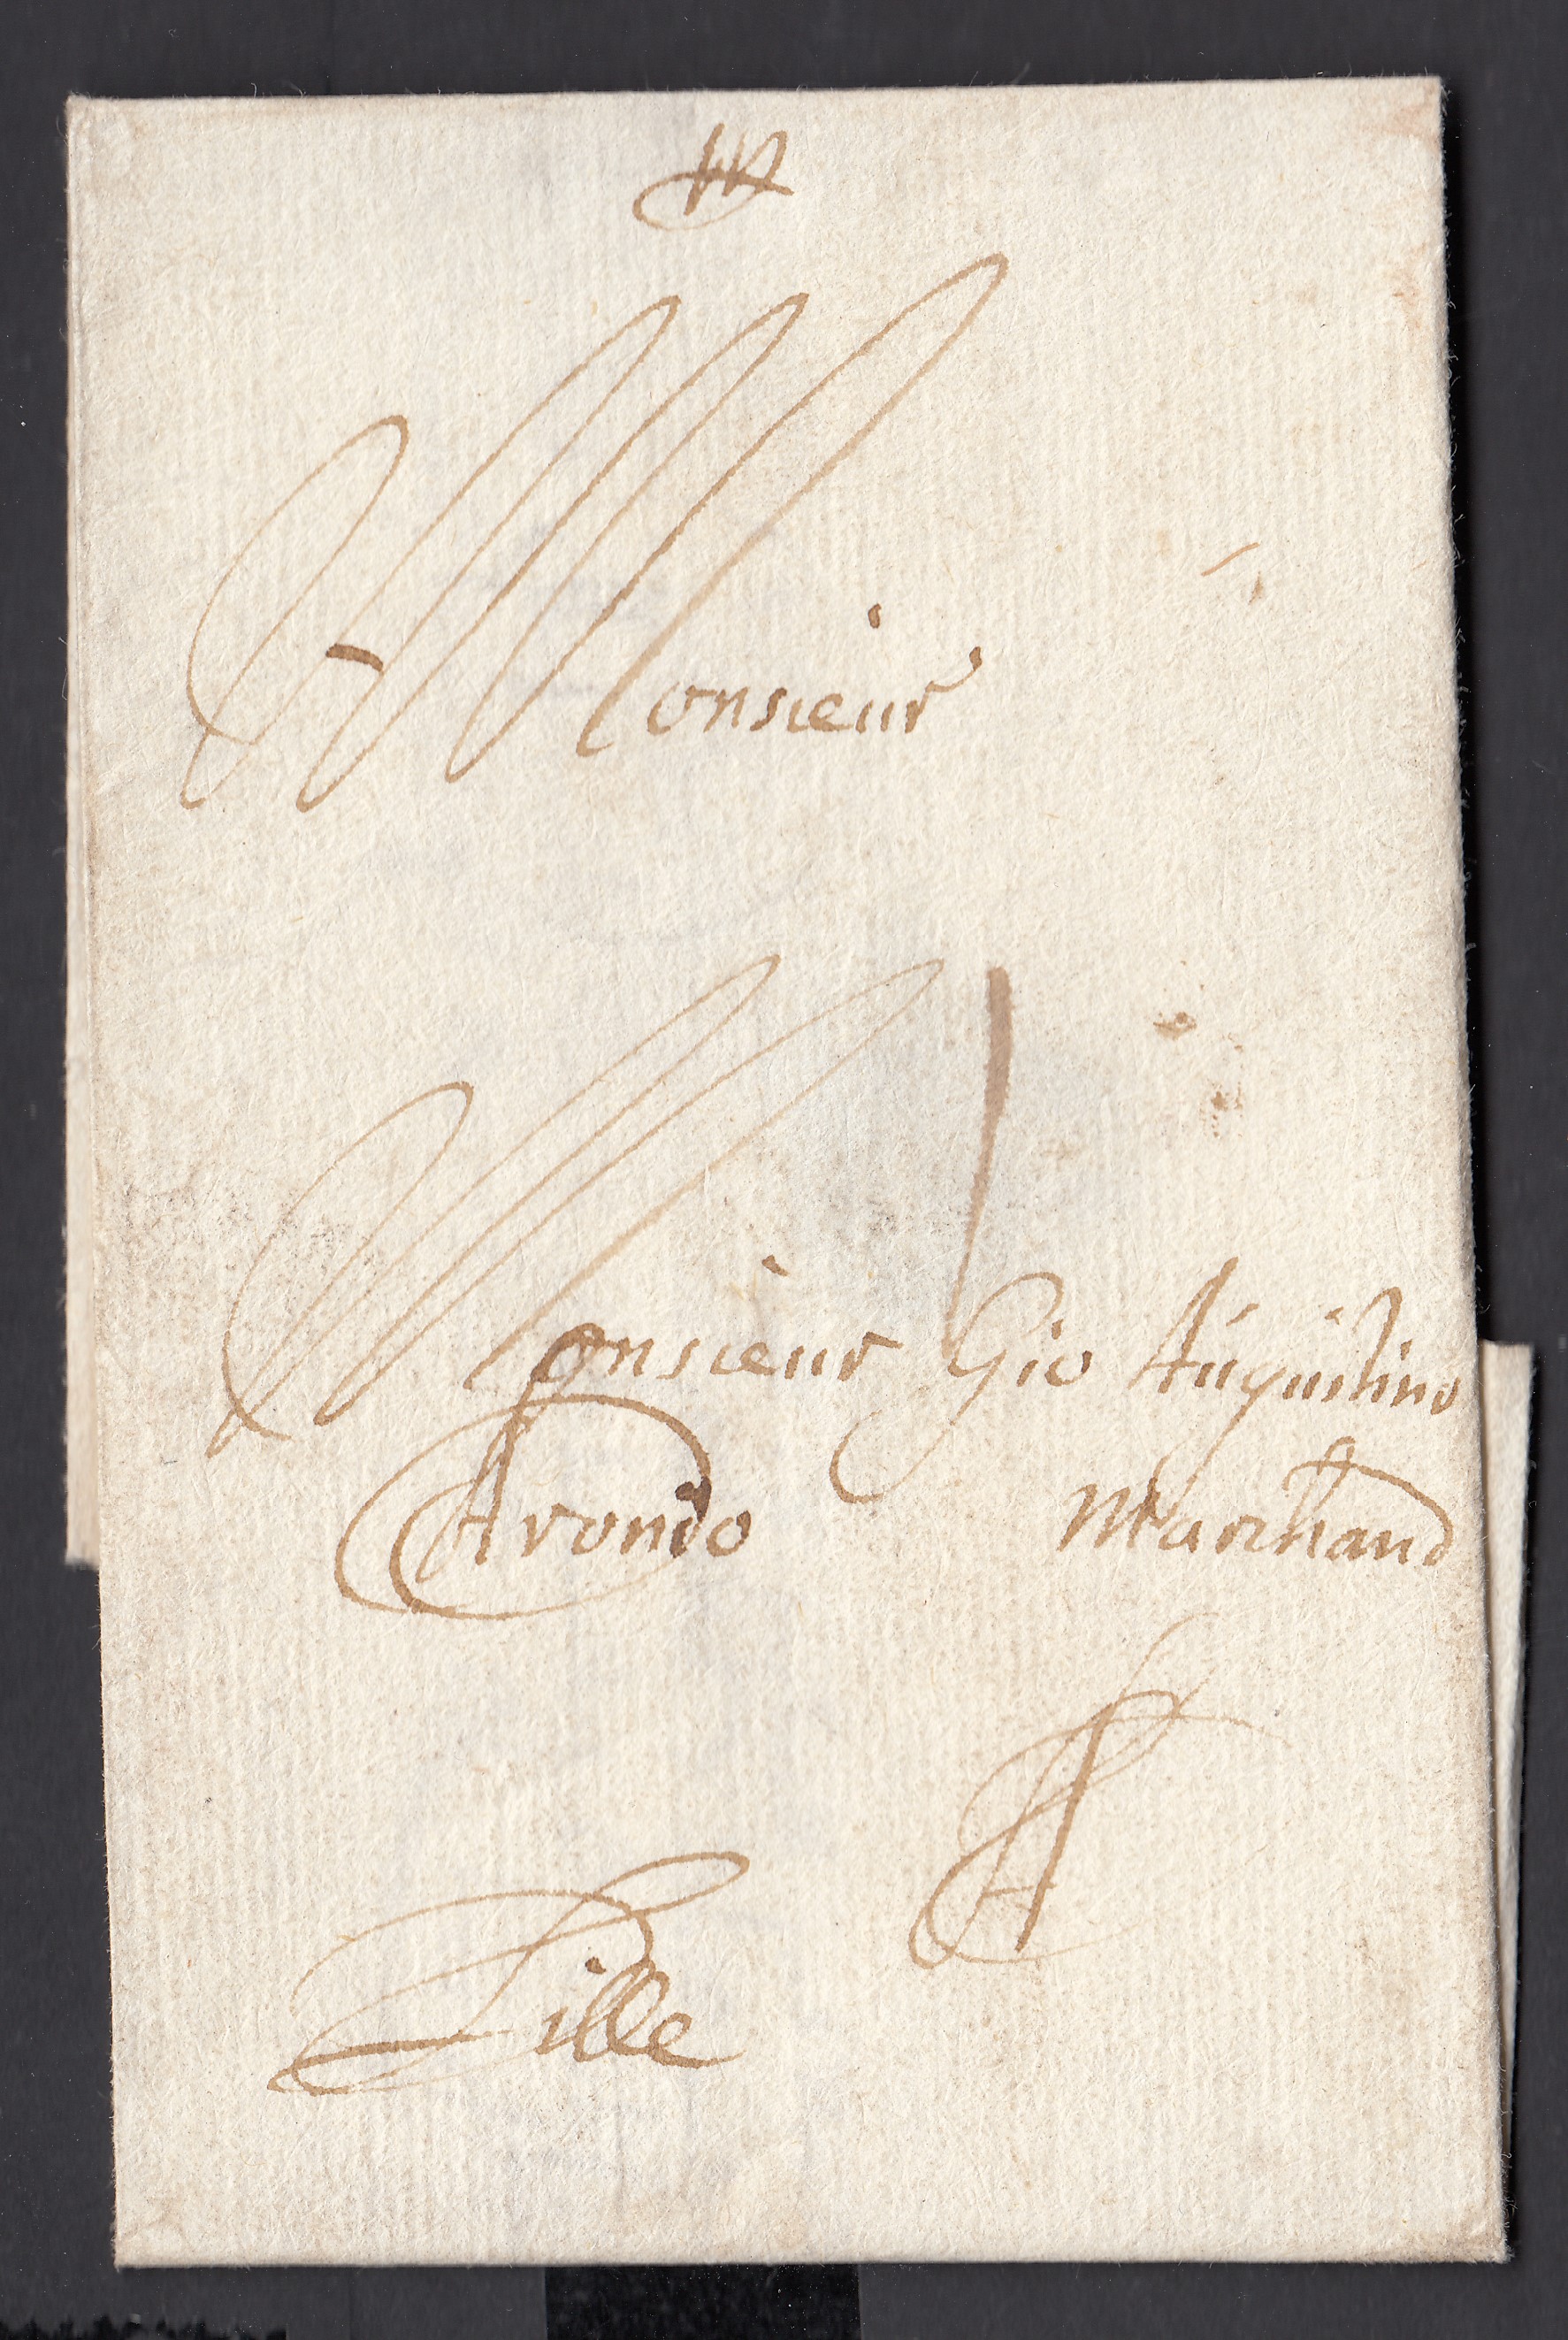 Monsieur
Monsieur Gio Augustino
Arondo Marchand
A
Lille